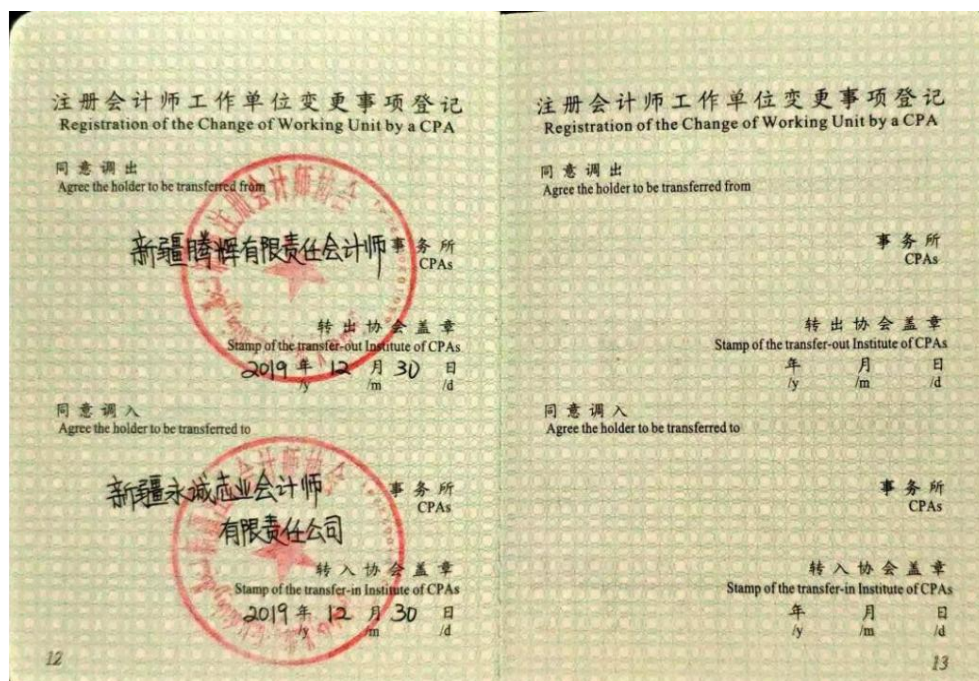 注册会计师工作单位变更事项登记
Registration of the Change of Working Unit by a CPA
同意调出
Agree the holder to be transferred from
新疆腾辉有限责任会计师 事务所
CPAs
转出协会盖章
Stamp of the transfer-out Institute of CPAs
2019 年 12 月 30 日
/y /m /d
同意调入
Agree the holder to be transferred to
新疆永诚志业会计师 事务所
CPAs
有限责任公司
转入协会盖章
Stamp of the transfer-in Institute of CPAs
2019 年 12 月 30 日
/y /m /d
12
注册会计师工作单位变更事项登记
Registration of the Change of Working Unit by a CPA
同意调出
Agree the holder to be transferred from
事务所
CPAs
转出协会盖章
Stamp of the transfer-out Institute of CPAs
年 月 日
/y /m /d
同意调入
Agree the holder to be transferred to
事务所
CPAs
转入协会盖章
Stamp of the transfer-in Institute of CPAs
年 月 日
/y /m /d
13